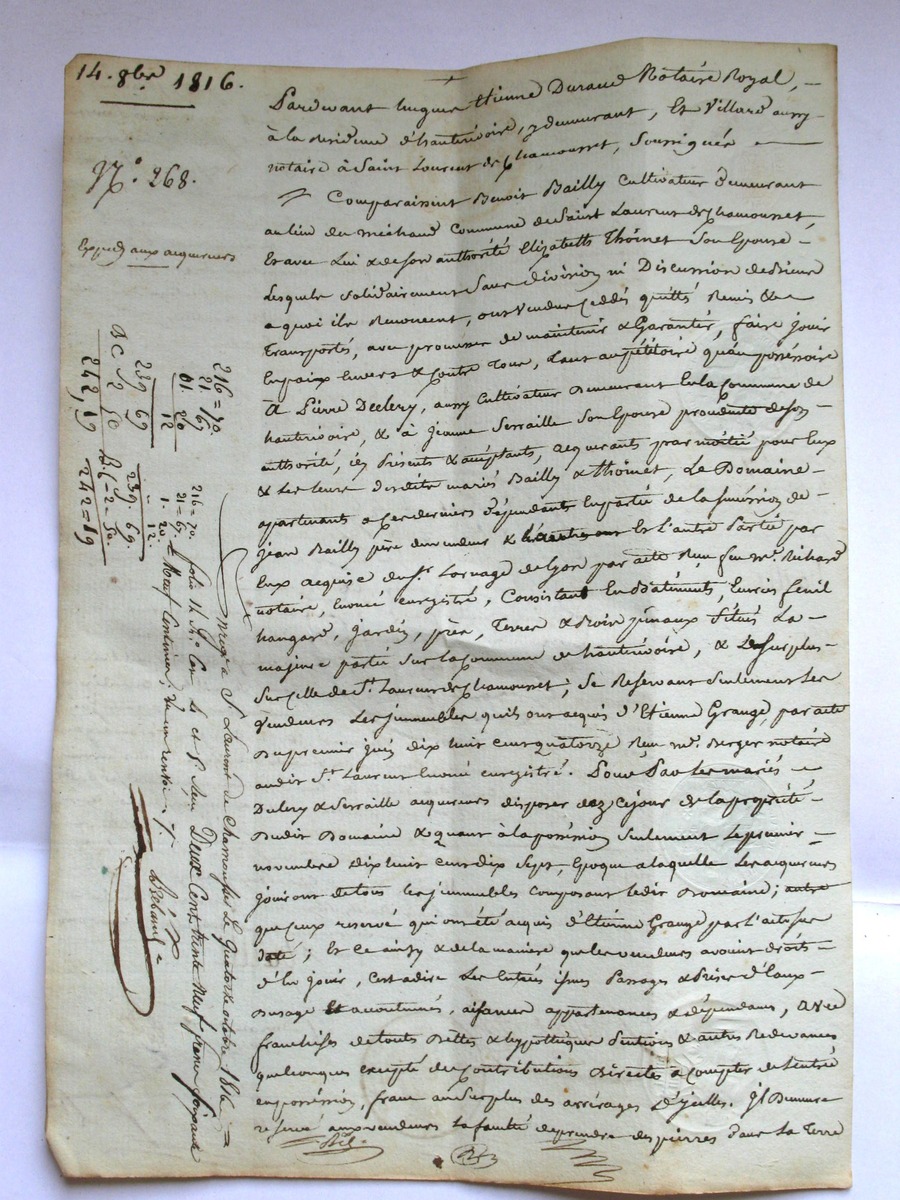 14. 8bre 1816.
N.° 268.
Exped aux acquereurs
Pardevant hugues Etienne Durand Notaire Royal,
à la residence d'hauterivoire, y demeurant, Et Villard aussy
notaire à Saint Laurent de Chamousset, Soussignés
Comparaissent Benoit Bailly Cultivateur Demeurant
au lieu du mechaud Commune de Saint Laurent de Chamousset
Et avec Lui & de son authorité Elizabeth Thoinet Son Epouse
Lesquels Solidairement Sans division ni Discussion
a quoi ils Renoncent, ont Vendu Ceddés quittés Remis &
Transportés, avec promesse de maintenir & Garantir, faire jouir
En paix Envers & Contre Tous, tant au pétitoire qu'au possessoire
à Pierre Decléry, aussy Cultivateur Demeurant En la Commune de
hauterivoire, & à Jeanne Serraille Son Epouse de son
authorité, ici présents & acceptants, acquerants par moitié pour Eux
& Les leurs desdits mariés Bailly & Thoinet, Le Domaine
appartenants a Ces derniers dépendants En partie de la succession de
jean Bailly père du vendeur & Et L'autre Partie par
Eux acquise du Sr. Lornage de Lyon par acte Reçu feu me. Richard
notaire, Enoncé enregistré, Consistant En Batiments,
hangard, Jardin, près, Terres & Bois Situés La
majeure partie Sur la Commune de hauterivoire, & Le Surplus
Sur Celle de St. Laurent de Chamousset; Se Reservant Seulement Les
Vendeurs Les jmmeubles qu'ils ont acquis d'Etienne Grange, par acte
Du premier juin dix huit cent quatorze Reçu me. Berger notaire
audit St. Laurent Enoncé enregistré. Pour Par Les mariés
Declery & Serraille acquereurs disposer dez Ce jour de la propriété
Dudit Domaine & quant à la possession Seulement Le premier
novembre Dix huit cent dix Sept, Epoque a laquelle Les acquereurs
jouiront de tous les jmmeubles Composant Ledit Domaine; autre
que Ceux reservé qui ont été acquis d'Etienne Grange par L'acte sus
daté; Et Ce ainsy & de la maniere que les vendeurs avoient droits
d'En Jouir, C'est a dire Les Entrées issues Passages & Prises d'Eaux
Dusage Et accoutumés, aisances appartenances & dépendances, avec
franchises de touts Dettes & hypothèques Pentions & autres Redevances
quelconques excepté des Contributions Directes a Compter de L'entrée
en possession, franc au Surplus des arrérages D'jcelles. Jl Demeure
reservé aux vendeurs La faculté de prendre des pierres Dans La Terre
Enregé a St Laurent de Chamousset Le Quatorze octobre 1816
folio 14 Ro. Deux Cent trente Neuf francs Soixante
Neuf Centimes,
216 = 70.
21 = 67
1 - 20
239. 69
239 69
242, 19
242 = 19